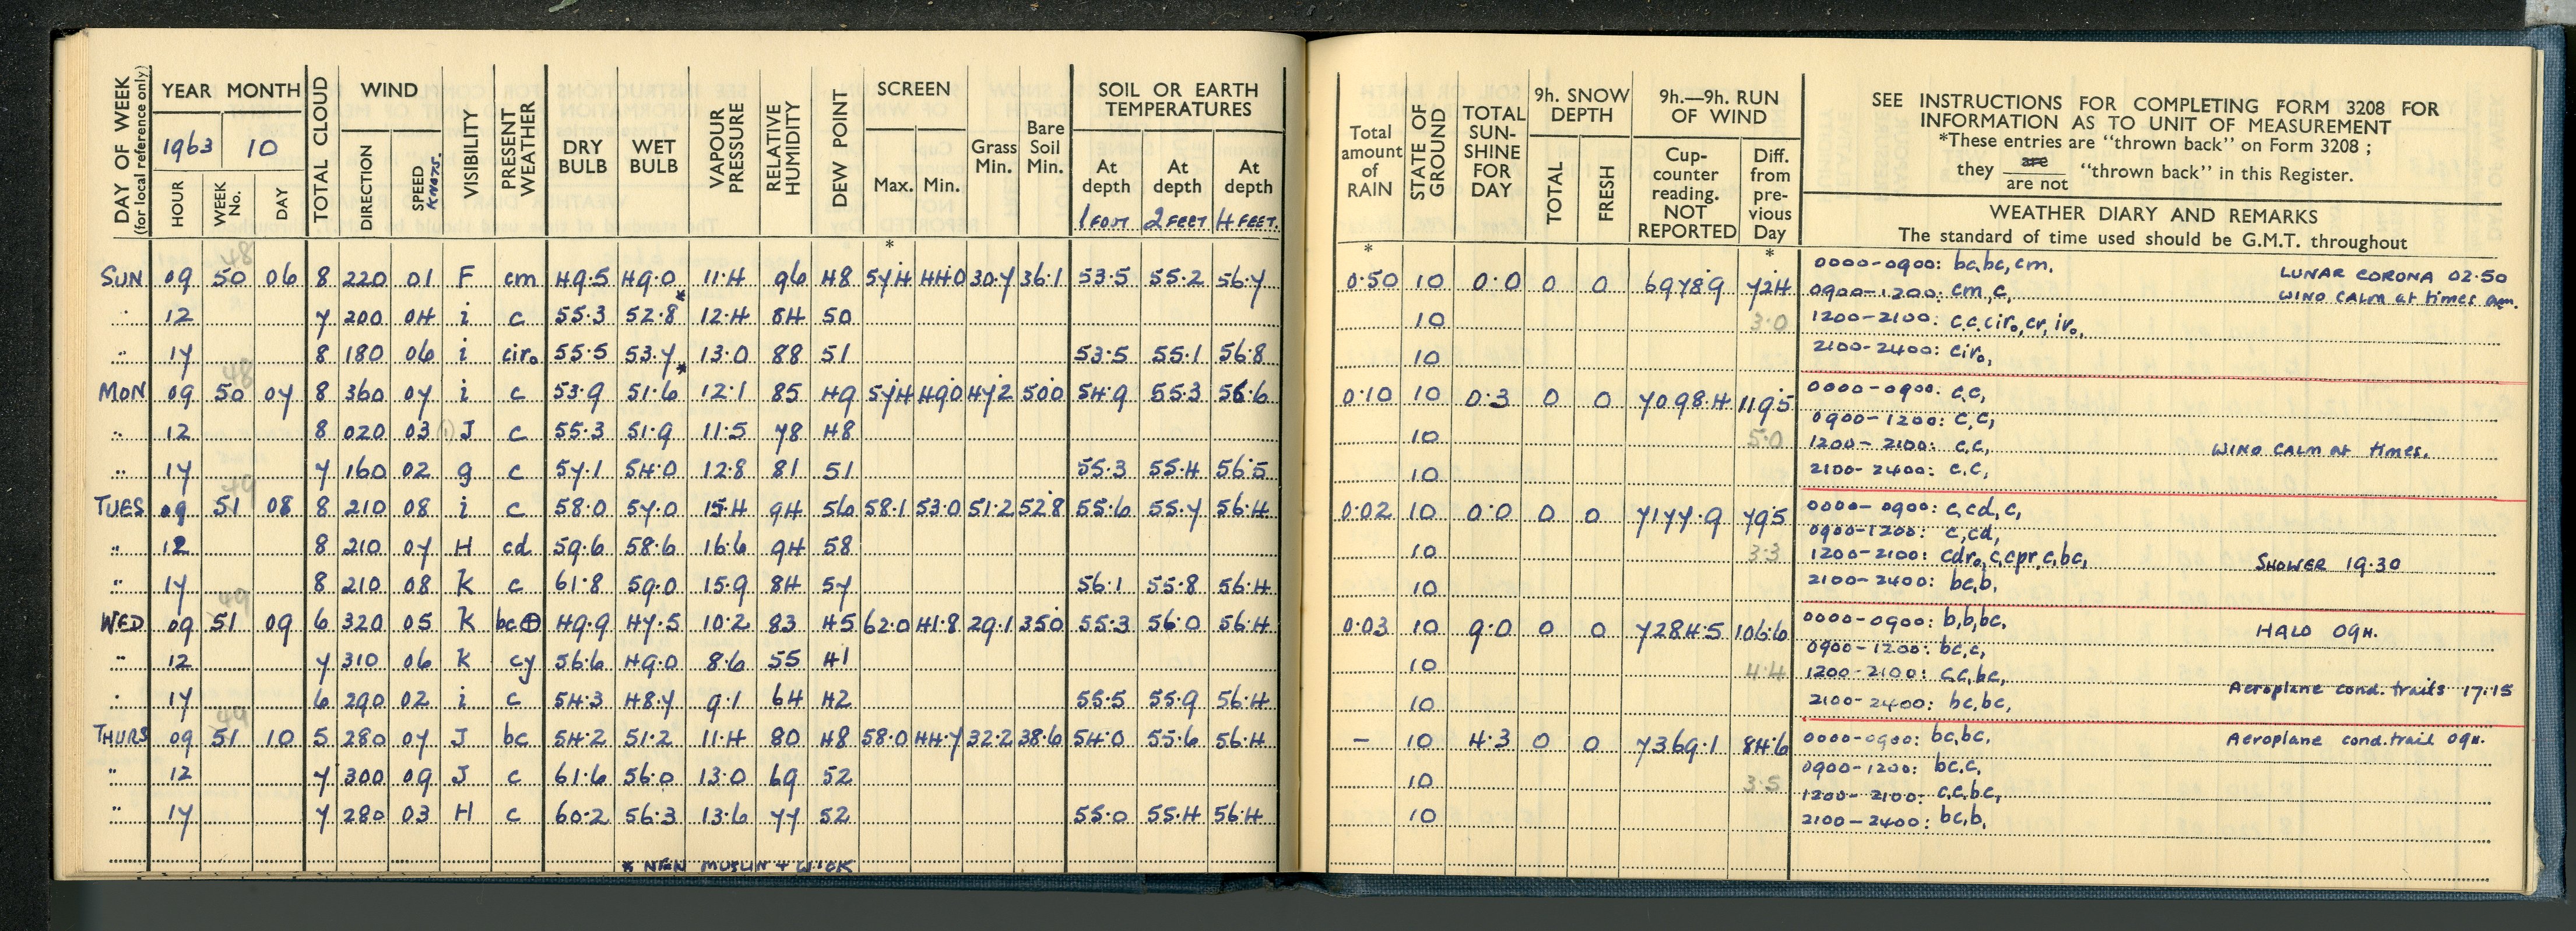 DAY OF WEEK
(for local reference only)
YEAR MONTH
1963 10
HOUR
WEEK No.
DAY
TOTAL CLOUD
WIND
DIRECTION
SPEED KNOTS.
VISIBILITY
PRESENT WEATHER
DRY BULB
WET BULB
VAPOUR PRESSURE
RELATIVE HUMIDITY
DEW POINT
SCREEN
Max. Min.
Grass Min.
Bare Soil Min.
SOIL OR EARTH TEMPERATURES
At depth 1 FOOT
At depth 2 FEET
At depth 4 FEET.
*
48
SUN 09 50 06 8 220 01 F cm 49.5 49.0 11.4 96 48 57.4 44.0 30.7 36.1 53.5 55.2 56.7
" 12 7 200 04 i c 55.3 52.8* 12.4 84 50
" 17 8 180 06 i ciro 55.5 53.7 13.0 88 51 53.5 55.1 56.8
48
MON 09 50 07 8 360 07 i c 53.9 51.6* 12.1 85 49 57.4 49.0 47.2 50.0 54.9 55.3 56.6
" 12 8 020 03 (1) J c 55.3 51.9 11.5 78 48
" 17 7 160 02 g c 57.1 54.0 12.8 81 51 55.3 55.4 56.5
49
TUES 09 51 08 8 210 08 i c 58.0 57.0 15.4 94 56 58.1 53.0 51.2 52.8 55.6 55.7 56.4
" 12 8 210 07 H cd 59.6 58.6 16.6 94 58
" 17 8 210 08 K c 61.8 59.0 15.9 84 57 56.1 55.8 56.4
49
WED 09 51 09 6 320 05 K bc⊕ 49.9 47.5 10.2 83 45 62.0 41.8 29.1 35.0 55.3 56.0 56.4
" 12 7 310 06 K cy 56.6 49.0 8.6 55 41
" 17 6 290 02 i c 54.3 48.7 9.1 64 42 55.5 55.9 56.4
49
THURS 09 51 10 5 280 07 J bc 54.2 51.2 11.4 80 48 58.0 44.7 32.2 38.6 54.0 55.6 56.4
" 12 7 300 09 J c 61.6 56.0 13.0 69 52
" 17 7 280 03 H c 60.2 56.3 13.6 77 52 55.0 55.4 56.4
* NEW MUSLIN + WICK
Total amount of RAIN
STATE OF GROUND
TOTAL SUN-SHINE FOR DAY
9h. SNOW DEPTH
TOTAL
FRESH
9h.—9h. RUN OF WIND
Cup-counter reading. NOT REPORTED
Diff. from pre-vious Day
SEE INSTRUCTIONS FOR COMPLETING FORM 3208 FOR
INFORMATION AS TO UNIT OF MEASUREMENT
*These entries are "thrown back" on Form 3208 ;
they are / are not "thrown back" in this Register.
WEATHER DIARY AND REMARKS
The standard of time used should be G.M.T. throughout
* *
0.50 10 0.0 0 0 6978.9 72.4 0000-0900: bc,bc,cm. LUNAR CORONA 02.50
0900-1200: cm,c, WIND CALM at times am.
10 3.0 1200-2100: c,c,ciro,cr,iro,
10 2100-2400: ciro,
0.10 10 0.3 0 0 7098.4 119.5 0000-0900: c,c,
0900-1200: c,c,
10 5.0 1200-2100: c,c, WIND CALM at times.
10 2100-2400: c,c,
0.02 10 0.0 0 0 7177.9 79.5 0000-0900: c,cd,c,
0900-1200: c,cd,
10 3.3 1200-2100: cdro,c,cpr,c,bc, SHOWER 19.30
10 2100-2400: bc,b,
0.03 10 9.0 0 0 7284.5 106.6 0000-0900: b,b,bc, HALO 09H.
0900-1200: bc,c,
10 4.4 1200-2100: c,c,bc,
10 2100-2400: bc,bc, Aeroplane cond. trails 17.15
— 10 4.3 0 0 7369.1 84.6 0000-0900: bc,bc, Aeroplane cond. trail 09H.
0900-1200: bc,c,
10 3.5 1200-2100: c,c,bc,
10 2100-2400: bc,b,